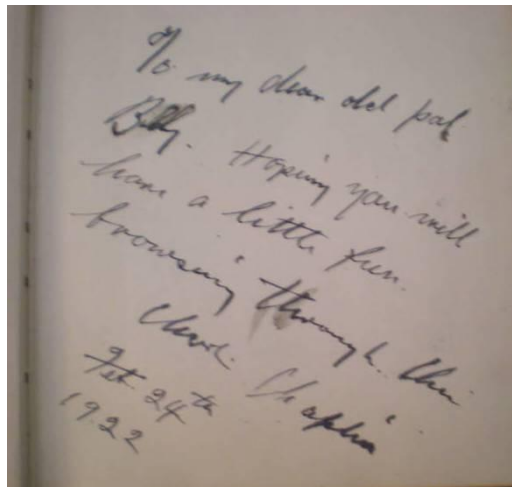 To my dear old pal
Billy. Hoping you will
have a little fun.
browsing through this
Charlie Chaplin
Feb 24th
1922